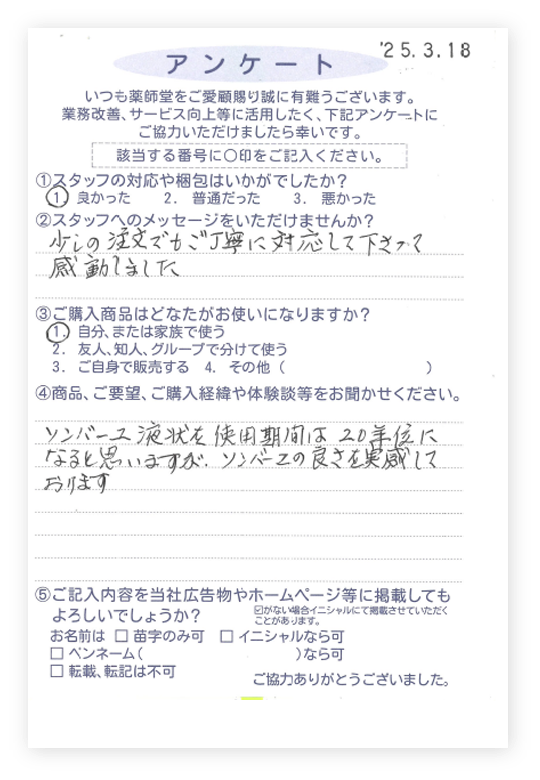 '25.3.18
アンケート
いつも薬師堂をご愛顧賜り誠に有難うございます。
業務改善、サービス向上等に活用したく、下記アンケートに
ご協力いただけましたら幸いです。
該当する番号に○印をご記入ください。
①スタッフの対応や梱包はいかがでしたか?
1. 良かった 2. 普通だった 3. 悪かった
②スタッフへのメッセージをいただけませんか?
少しの注文でもご丁寧に対応して下さって
感動しました
③ご購入商品はどなたがお使いになりますか?
1. 自分、または家族で使う
2. 友人、知人、グループで分けて使う
3. ご自身で販売する 4. その他( )
④商品、ご要望、ご購入経緯や体験談等をお聞かせください。
ソンバーユ液状を使用期間は20年位に
なると思いますが、ソンバーユの良さを実感して
おります
⑤ご記入内容を当社広告物やホームページ等に掲載しても
よろしいでしょうか?
☑がない場合イニシャルにて掲載させていただく
ことがあります。
お名前は □ 苗字のみ可 □ イニシャルなら可
□ ペンネーム( )なら可
□ 転載、転記は不可
ご協力ありがとうございました。